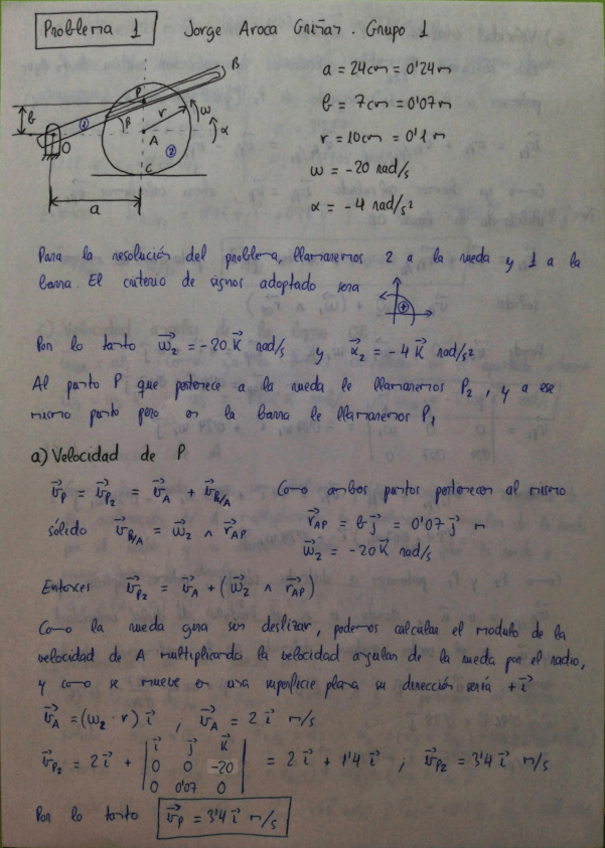 Problema 1 Jorge Aroca Griñán. Grupo 1
a = 24cm = 0'24 m
b = 7cm = 0'07 m
r = 10cm = 0'1 m
ω = -20 rad/s
α = -4 rad/s²
B
P
b
1
β
r
ω
α
O
A
2
C
a
Para la resolución del problema, llamaremos 2 a la rueda y 1 a la
barra. El criterio de signos adoptado sera +
Por lo tanto ω⃗₂ = -20 k⃗ rad/s y α⃗₂ = -4 k⃗ rad/s²
Al punto P que pertenece a la rueda le llamaremos P₂, y a ese
mismo punto pero en la barra le llamaremos P₁
a) Velocidad de P
v⃗P = v⃗P₂ = v⃗A + v⃗P₂/A Como ambos puntos pertenecen al mismo
sólido v⃗P₂/A = ω⃗₂ ∧ r⃗AP r⃗AP = b j⃗ = 0'07 j⃗ m
ω⃗₂ = -20 k⃗ rad/s
Entonces v⃗P₂ = v⃗A + (ω⃗₂ ∧ r⃗AP)
Como la rueda gira sin deslizar, podemos calcular el modulo de la
velocidad de A multiplicando la velocidad angular de la rueda por el radio,
y como se mueve en una superficie plana su dirección sería + i⃗
v⃗A = (ω₂ · r) i⃗ , v⃗A = 2 i⃗ m/s
v⃗P₂ = 2 i⃗ + | i⃗ j⃗ k⃗ | = 2 i⃗ + 1'4 i⃗ ; v⃗P₂ = 3'4 i⃗ m/s
0 0 -20
0 0'07 0
Por lo tanto v⃗P = 3'4 i⃗ m/s